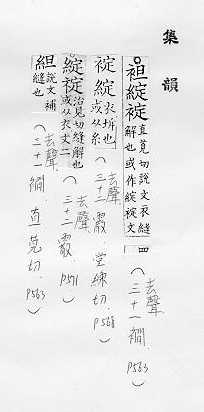 集韻
袒綻䘺 直莧切說文衣縫解也或作綻䘺文四（去聲 三十一襉 P563）
䘺綻 衣坼也或从糸（去聲 三十二霰 堂練切 P568）
綻䘺 治見切縫解也或从衣文二（去聲 三十二霰 P571）
䋎 說文補縫也（去聲 三十一襉 直莧切 P563）